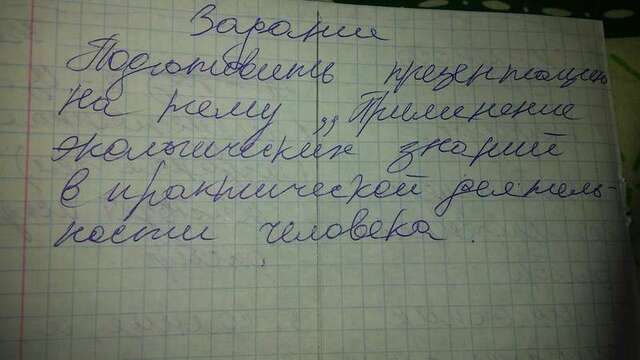 Задание
Подготовить презентацию
на тему „Применение
экологических знаний
в практической деятель-
ности человека.